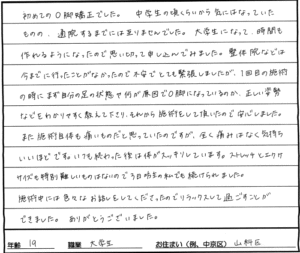 初めてのO脚矯正でした。中学生の頃くらいから気にはなっていた
ものの、通院するまでには至りませんでした。大学生になって、時間も
作れるようになったので思い切って申し込んでみました。整体院などは
今までに行ったことがなかったので不安でとても緊張しましたが、1回目の施術
の時にまず自分の足の状態や何が原因でO脚になっているのか、正しい姿勢
などをわかりやすく教えて下さり、それから施術をして頂いたので安心しました。
また施術自体も痛いものだと思っていたのですが、全く痛みはなく気持ち
いいほどです。いつも終わった後は体がスッキリしています。ストレッチとエクササイズも
特別難しいものはないので3日坊主の私でも続けられました。
施術中には色々なお話しもしてくださったのでリラックスして過ごすことが
できました。ありがとうございました。
年齢 19 職業 大学生 お住まい(例、中京区) 山科区